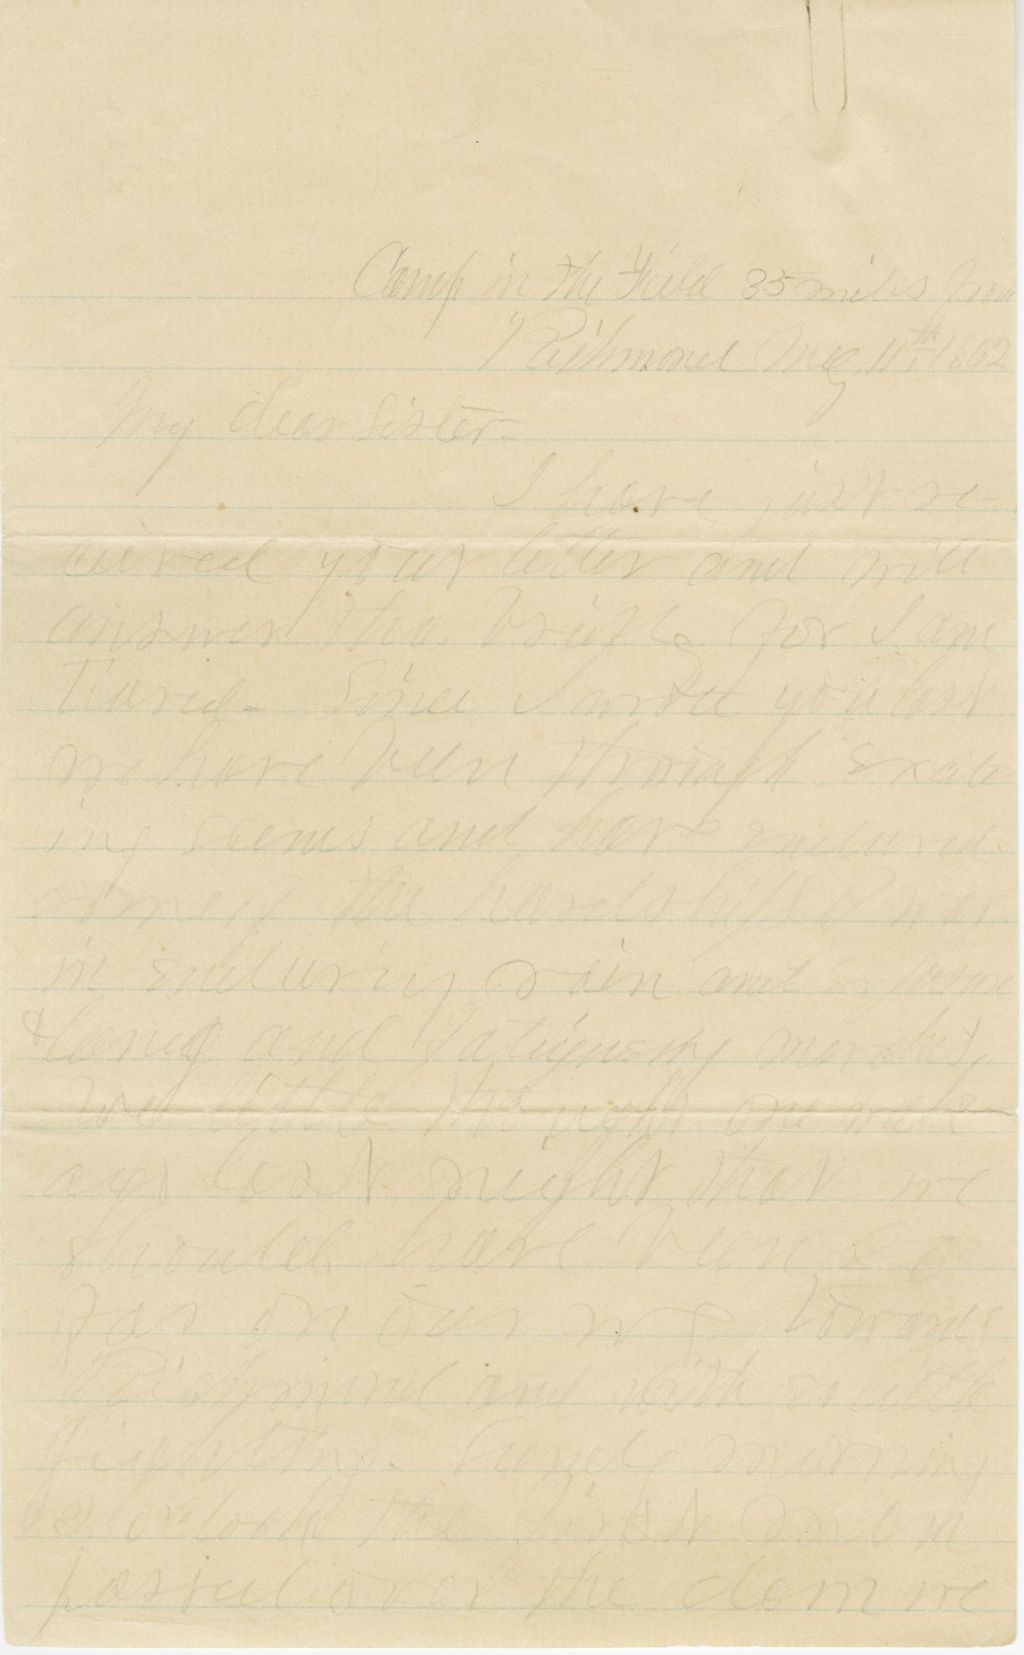 Camp in the Field 35 miles from
Richmond May 11th 1862
My dear Sister-
I have just re-
cieved your letter and will
answer tho briefly for I am
Tiared- Since I wrote you last
we have been through excit
ing scenes and have endured
the hardships
in enduring rain and
long and fatigueing marches,
We little thought one week
ago last night that we
should have been so
far on our way towards
Richmond and with so little
fighting. Sunday morning
oclock the first
passed over the dam we